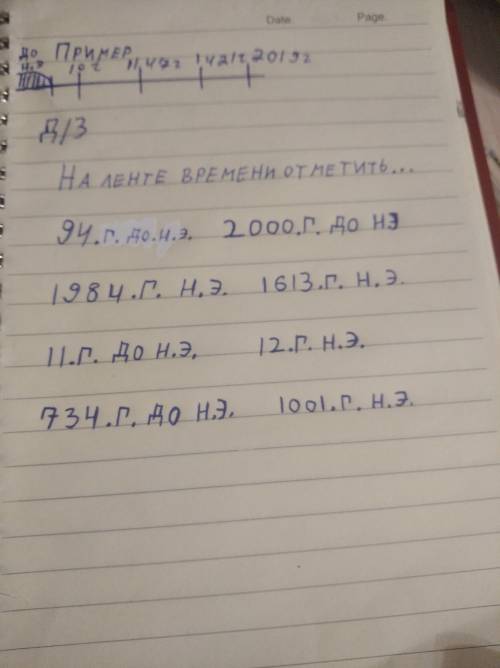 Date Page.
до Пример
н.э 10 г 1147г 1421г. 2019г
Д/З
На ленте времени отметить...
94.г. до.н.э. 2000.г. до нэ
1984.г. н.э. 1613.г. н.э.
11.г. до н.э. 12.г. н.э.
734.г. до н.э. 1001.г. н.э.